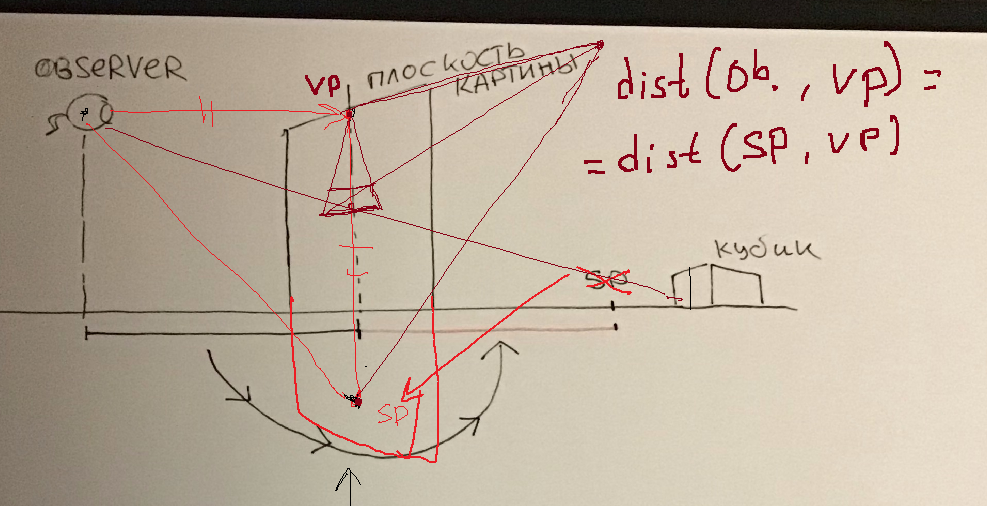 OBSERVER
VP
ПЛОСКОСТЬ
КАРТИНЫ
dist (Ob. , VP) =
= dist (SP, VP)
SP
кубик
SP